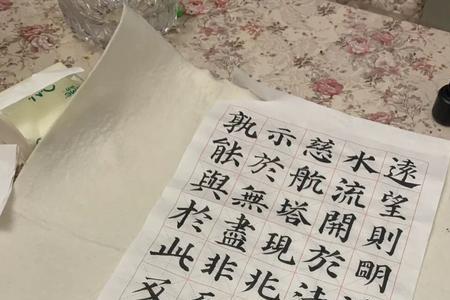 遠望則明
水流開於法
慈航塔現兆
示於無盡非
孰能與於此